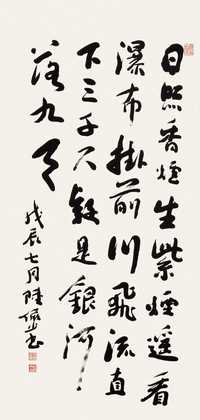 日照香炉生紫煙遥看
瀑布掛前川飛流直
下三千尺疑是銀河
落九天
戊辰七月陸儼少书